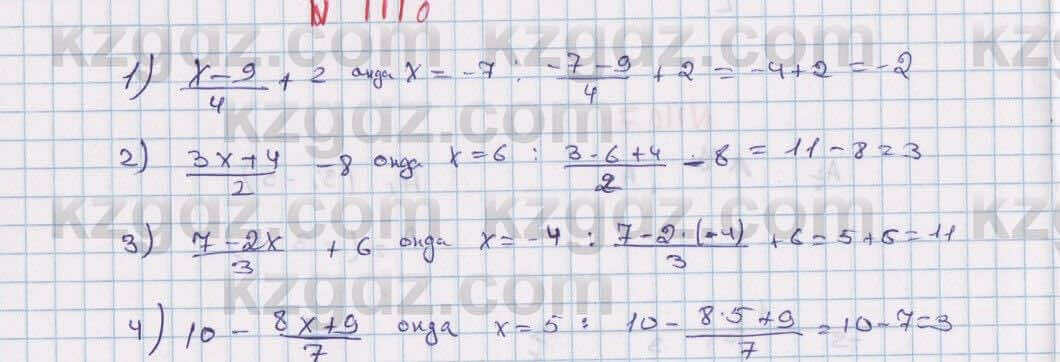 N 1110
kzgdz.com kzgdz.com kzgdz.com
1) (x-9)/4 + 2 онда x = -7 : (-7-9)/4 + 2 = -4+2 = -2
kzgdz.com kzgdz.com
2) (3x+4)/2 -8 онда x=6 : (3·6+4)/2 - 8 = 11-8=3
kzgdz.com kzgdz.com kzgdz.com
3) (7-2x)/3 + 6 онда x=-4 : (7-2·(-4))/3 +6=5+6=11
kzgdz.com kzgdz.com
4) 10 - (8x+9)/7 онда x=5 : 10 - (8·5+9)/7 = 10-7=3